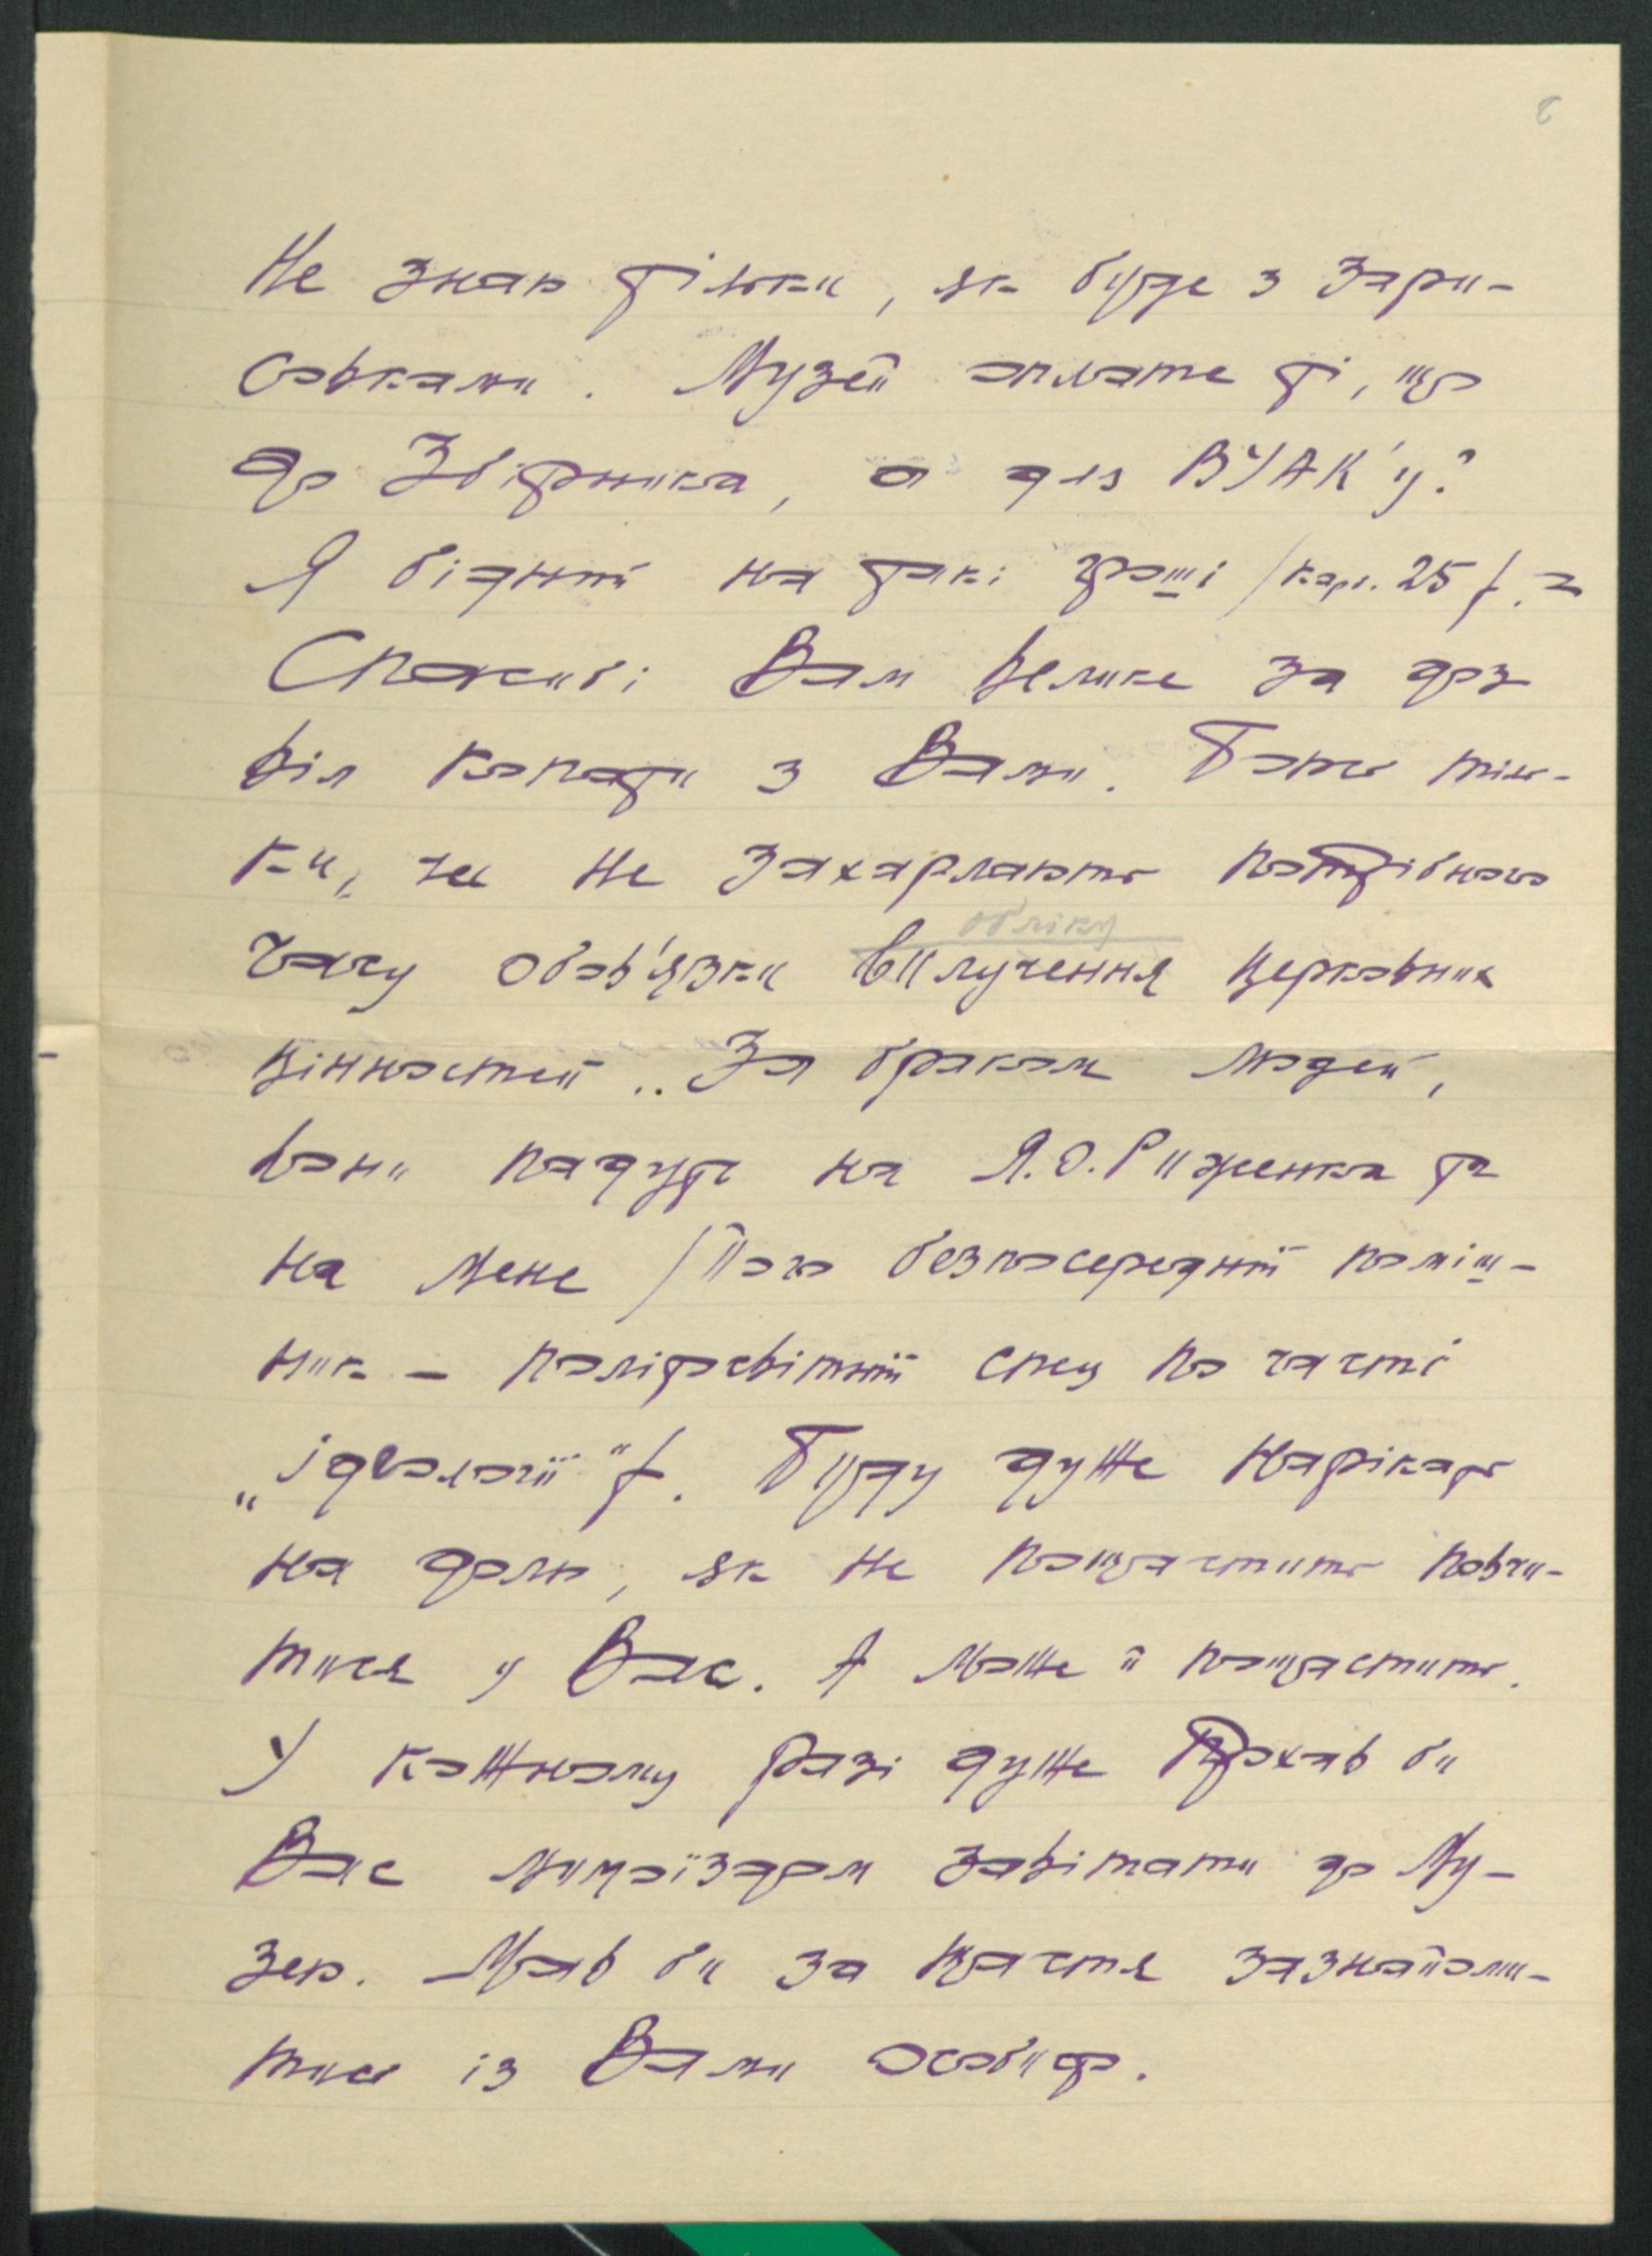 Не знаю тільки, як буде з зари-
совками. Музей оплате ті, що
до Збірника, а для ВУАК'у?
Я бідний на такі гроші /карб. 25/.
Спасибі Вам велике за доз
віл копати з Вами. Боюсь тіль-
ки, чи не захарлають потрібного
часу обов'язки вилучення церковних
обліку
цінностей.. За браком людей,
вони падуть на Я.О. Риженка та
на мене /Його безпосередній поміш-
ник – політосвітній спец по части
„ідеології"/. Буду дуже нарікать
на долю, як не пощастить повчи-
тися у Вас. А може й пощастить.
У кожному разі дуже прохав би
Вас мимоїздом завітати до Му-
зею. Мав би за щастя зазнайоми-
тись із Вами особисто.